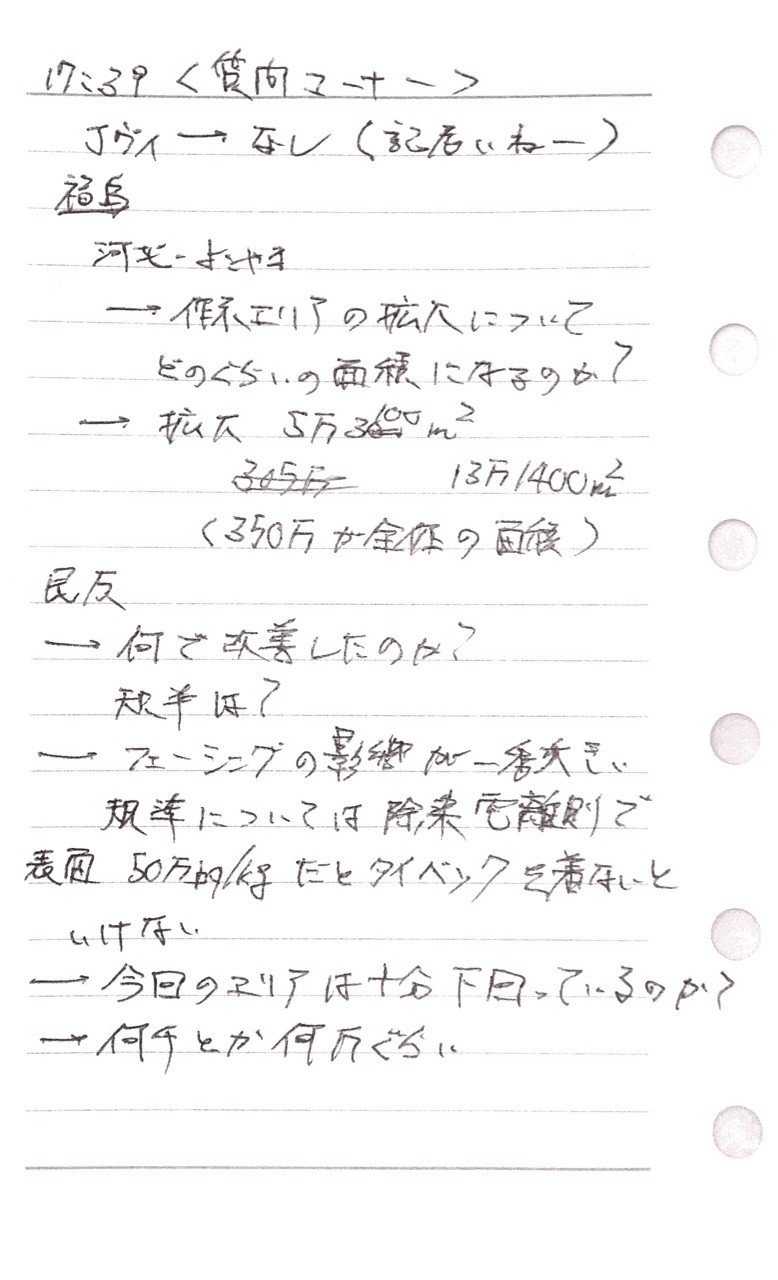 17:39 <質問コーナー>
Jヴィ → なし (記者いねー)
福島
河北-よこやま
→ 作業エリアの拡大について
どのぐらいの面積になるのか?
→ 拡大 5万3600m²
305万 13万1400m²
(350万が全体の面積)
民友
→ 何で改善したのか?
規準は?
→ フェーシングの影響が一番大きい
規準については除染電離則で
表面 50万bq/kg だとタイベックを着ないと
いけない
→ 今回のエリアは十分下回っているのか?
→ 何千とか何万ぐらい